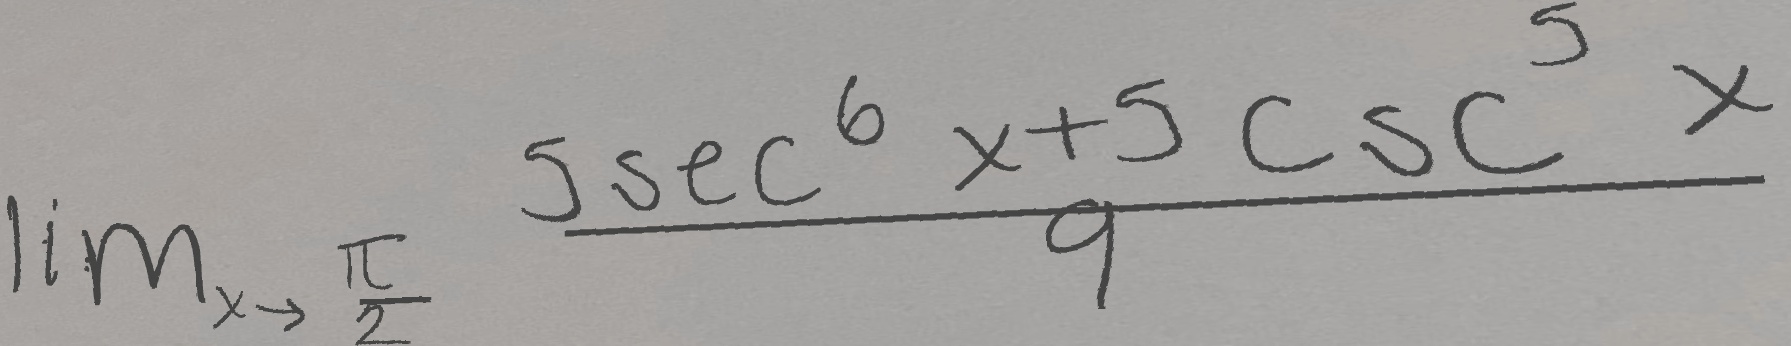 lim_{x→\frac{π}{2}} \frac{5sec^6 x+5csc^5 x}{9}